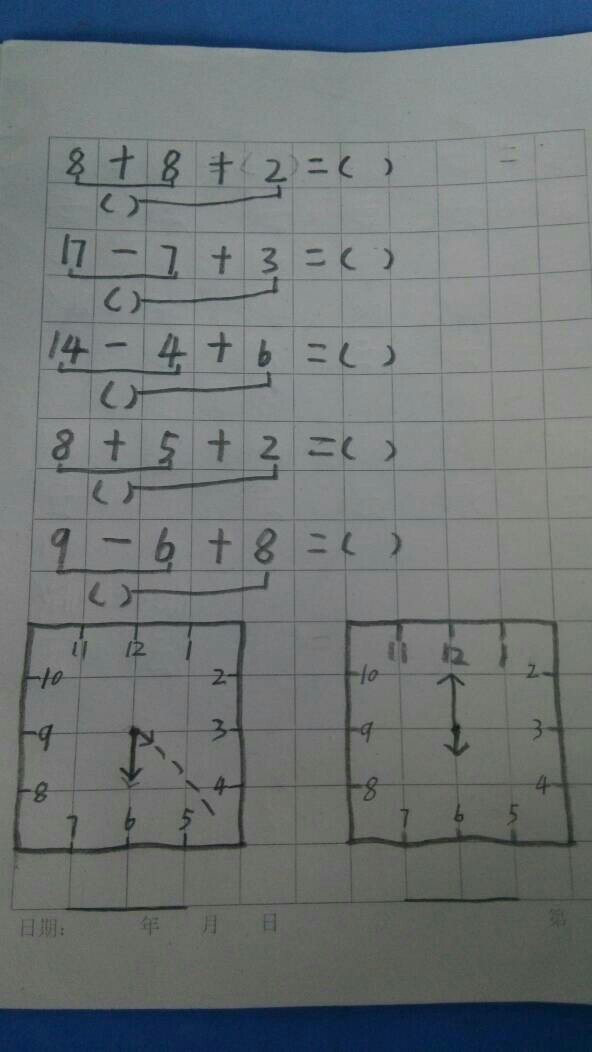 8 + 8 + (2) = ( )
( )
17 - 7 + 3 = ( )
( )
14 - 4 + 6 = ( )
( )
8 + 5 + 2 = ( )
( )
9 - 6 + 8 = ( )
( )
11 12 1
10 2
9 3
8 4
7 6 5
11 12 1
10 2
9 3
8 4
7 6 5
日期: 年 月 日 第